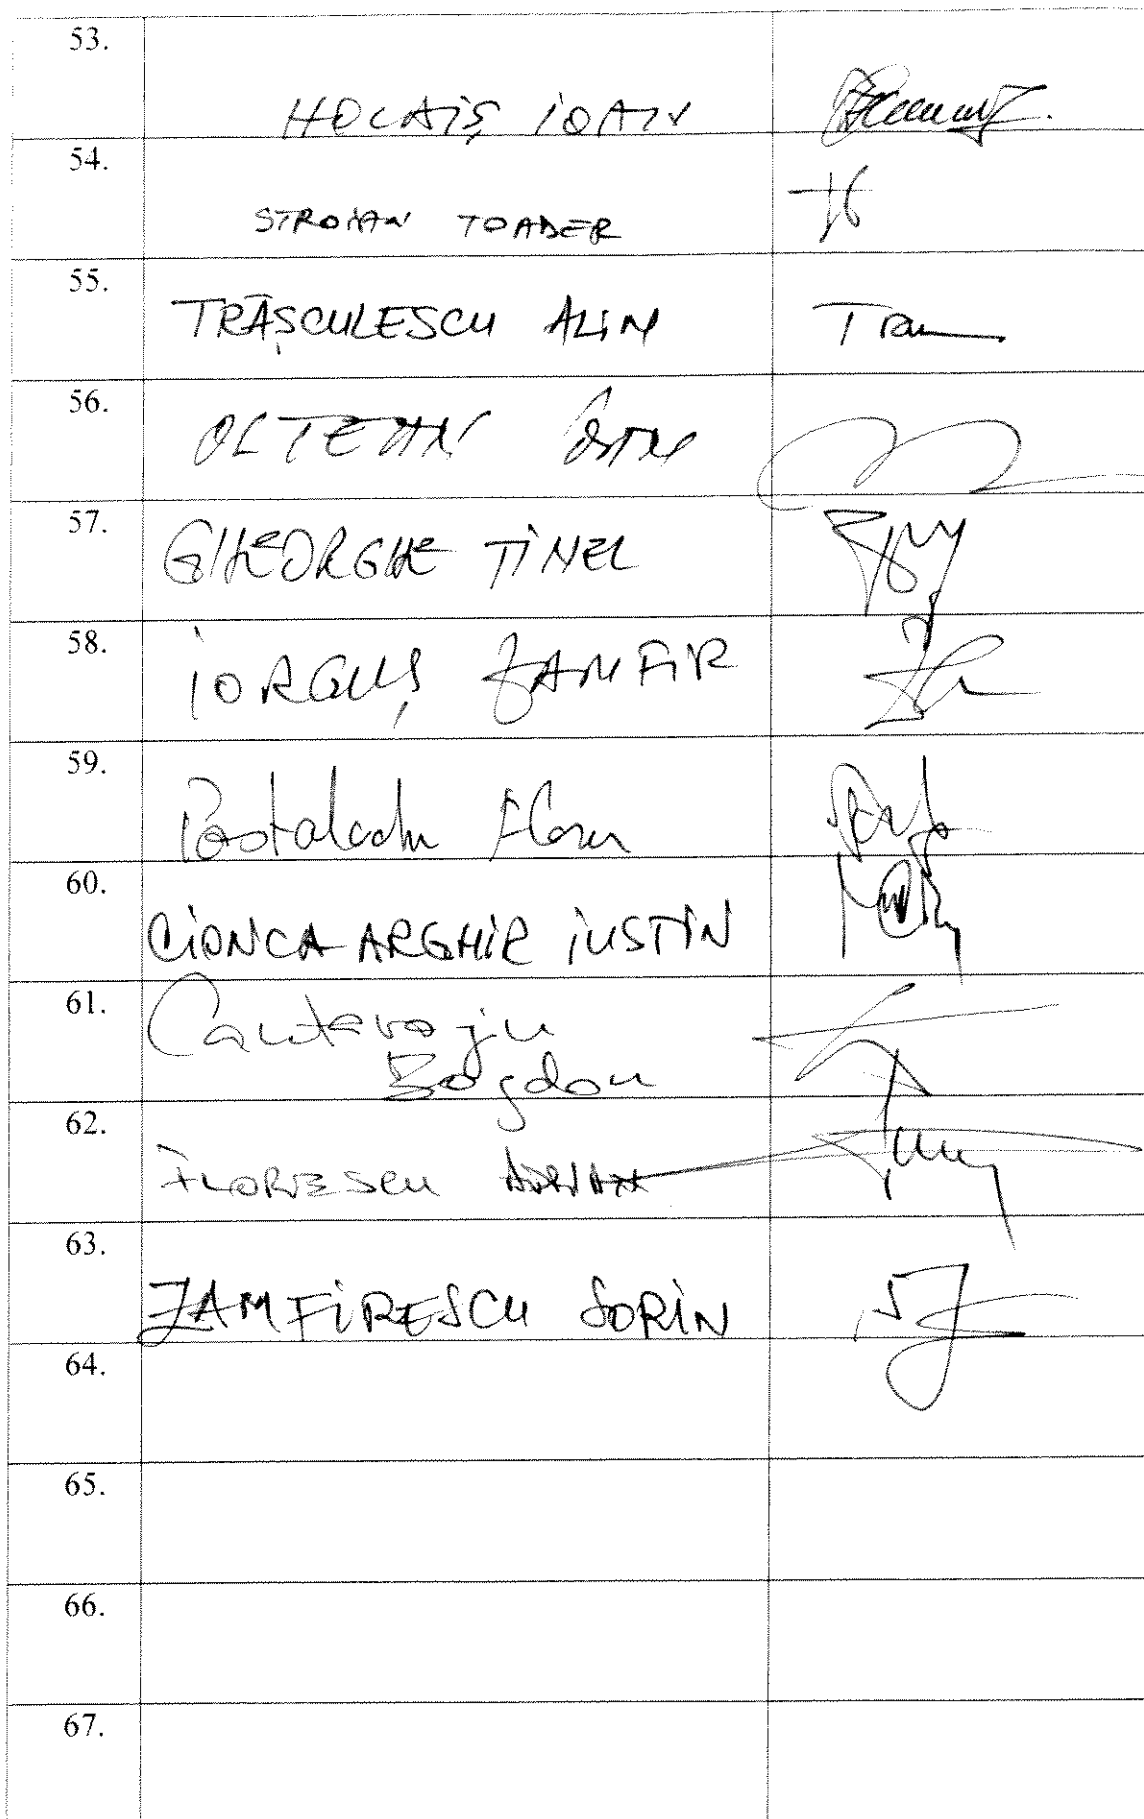 53.
HOLAIŞ IOAN
54.
STROIAN TOADER
55.
TRĂŞCULESCU ALIN
Tra
56.
OLTEAN IOAN
57.
GHEORGHE TINEL
58.
IORGUŞ ZAMFIR
59.
Postolachi Florin
60.
CIONCA ARGHIR IUSTIN
61.
Cantaragiu
Bogdan
62.
FLORESCU ADRIAN
63.
ZAMFIRESCU SORIN
64.
65.
66.
67.